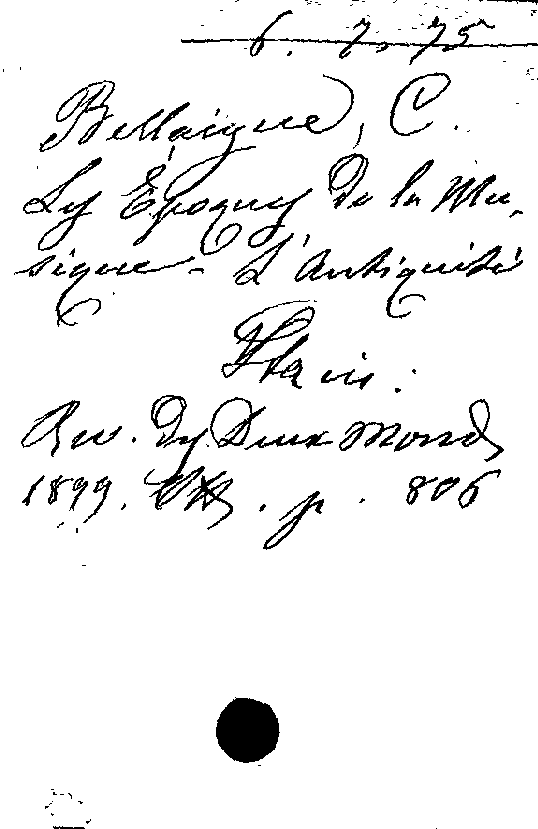 6. 7. 75
Bellaigue, C.
Les Époques de la Mu-
sique - L'Antiquité
Rev. des Deux Mondes
1899. p. 806